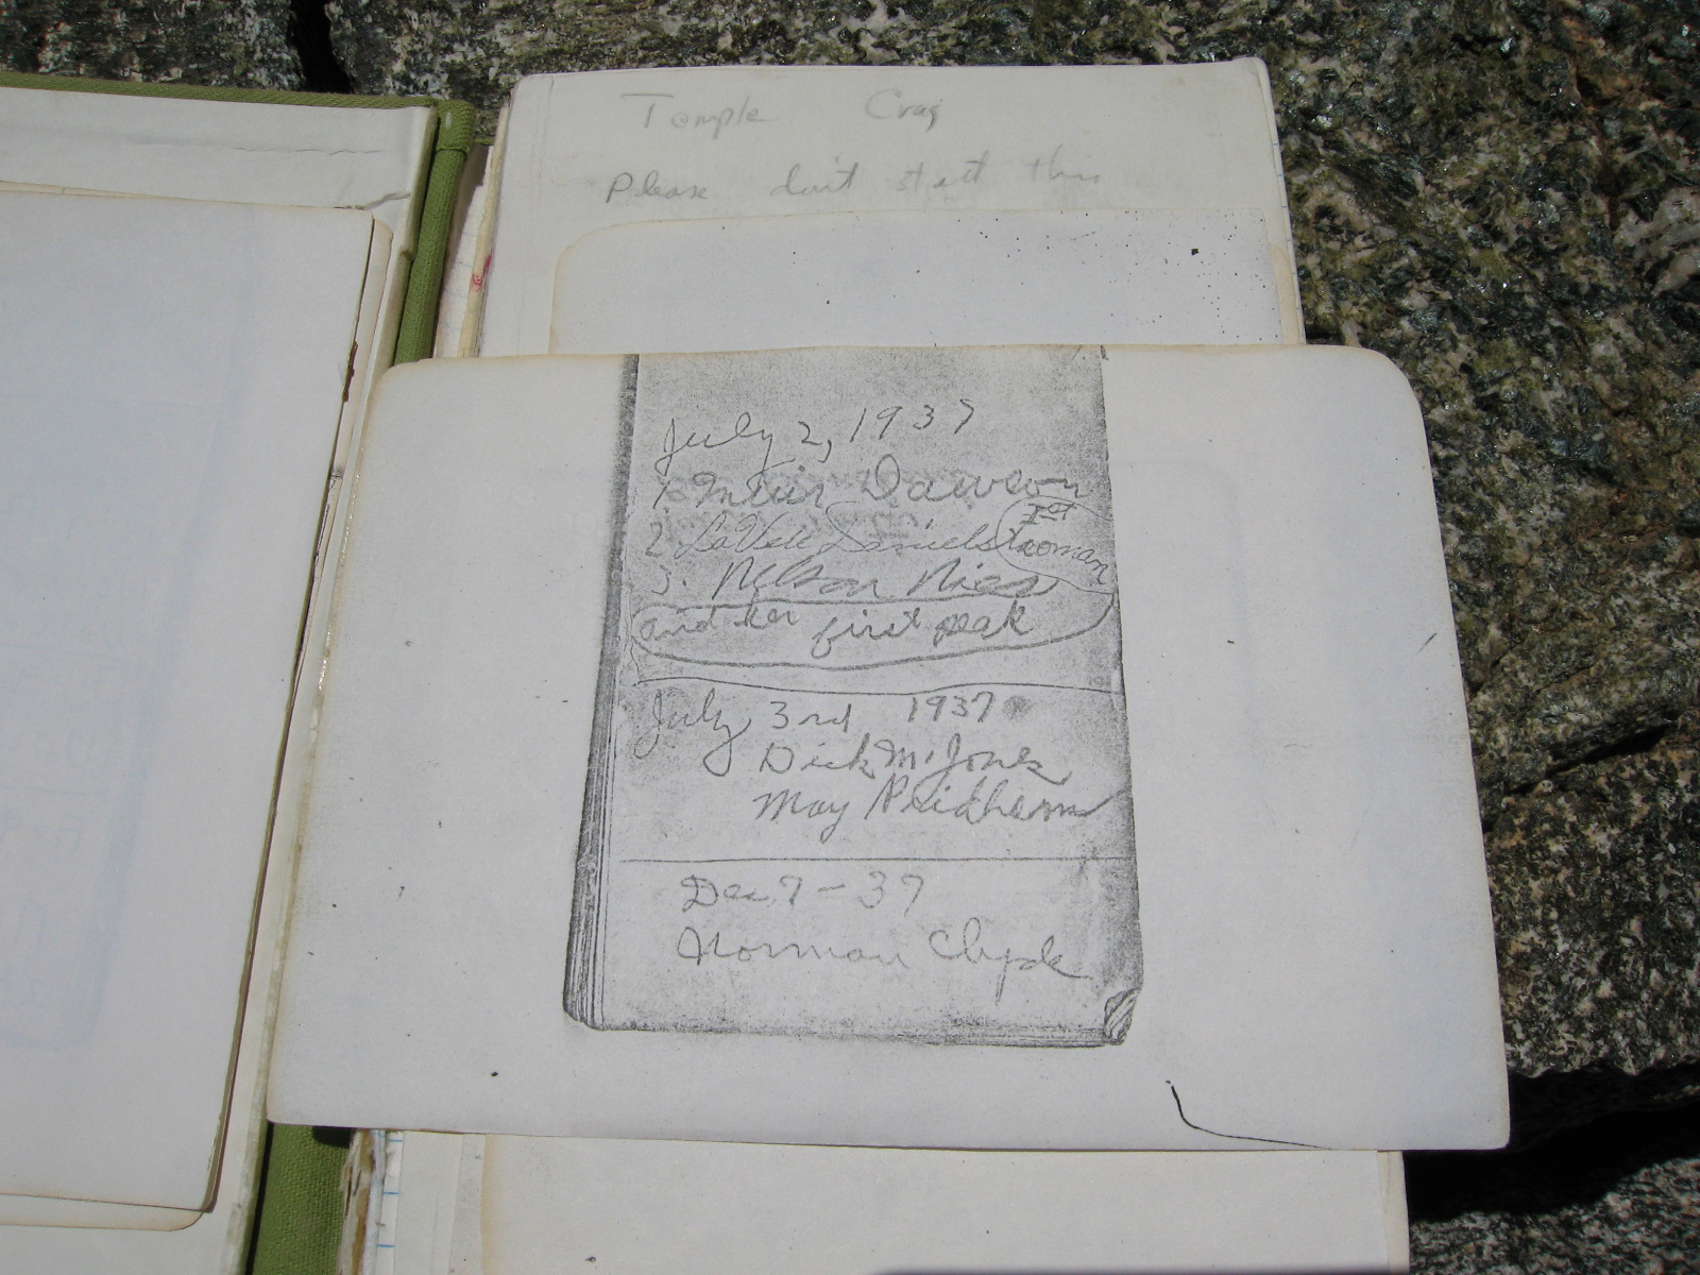 Temple Crag
Please don't start this
July 2, 1937
1. Muir Dawson
2 LaVele Daniels 1st woman
3. Nelson Nies
and her first peak
July 3rd 1937
Dick M. Jones
May Pridham
Dec. 7-37
Norman Clyde